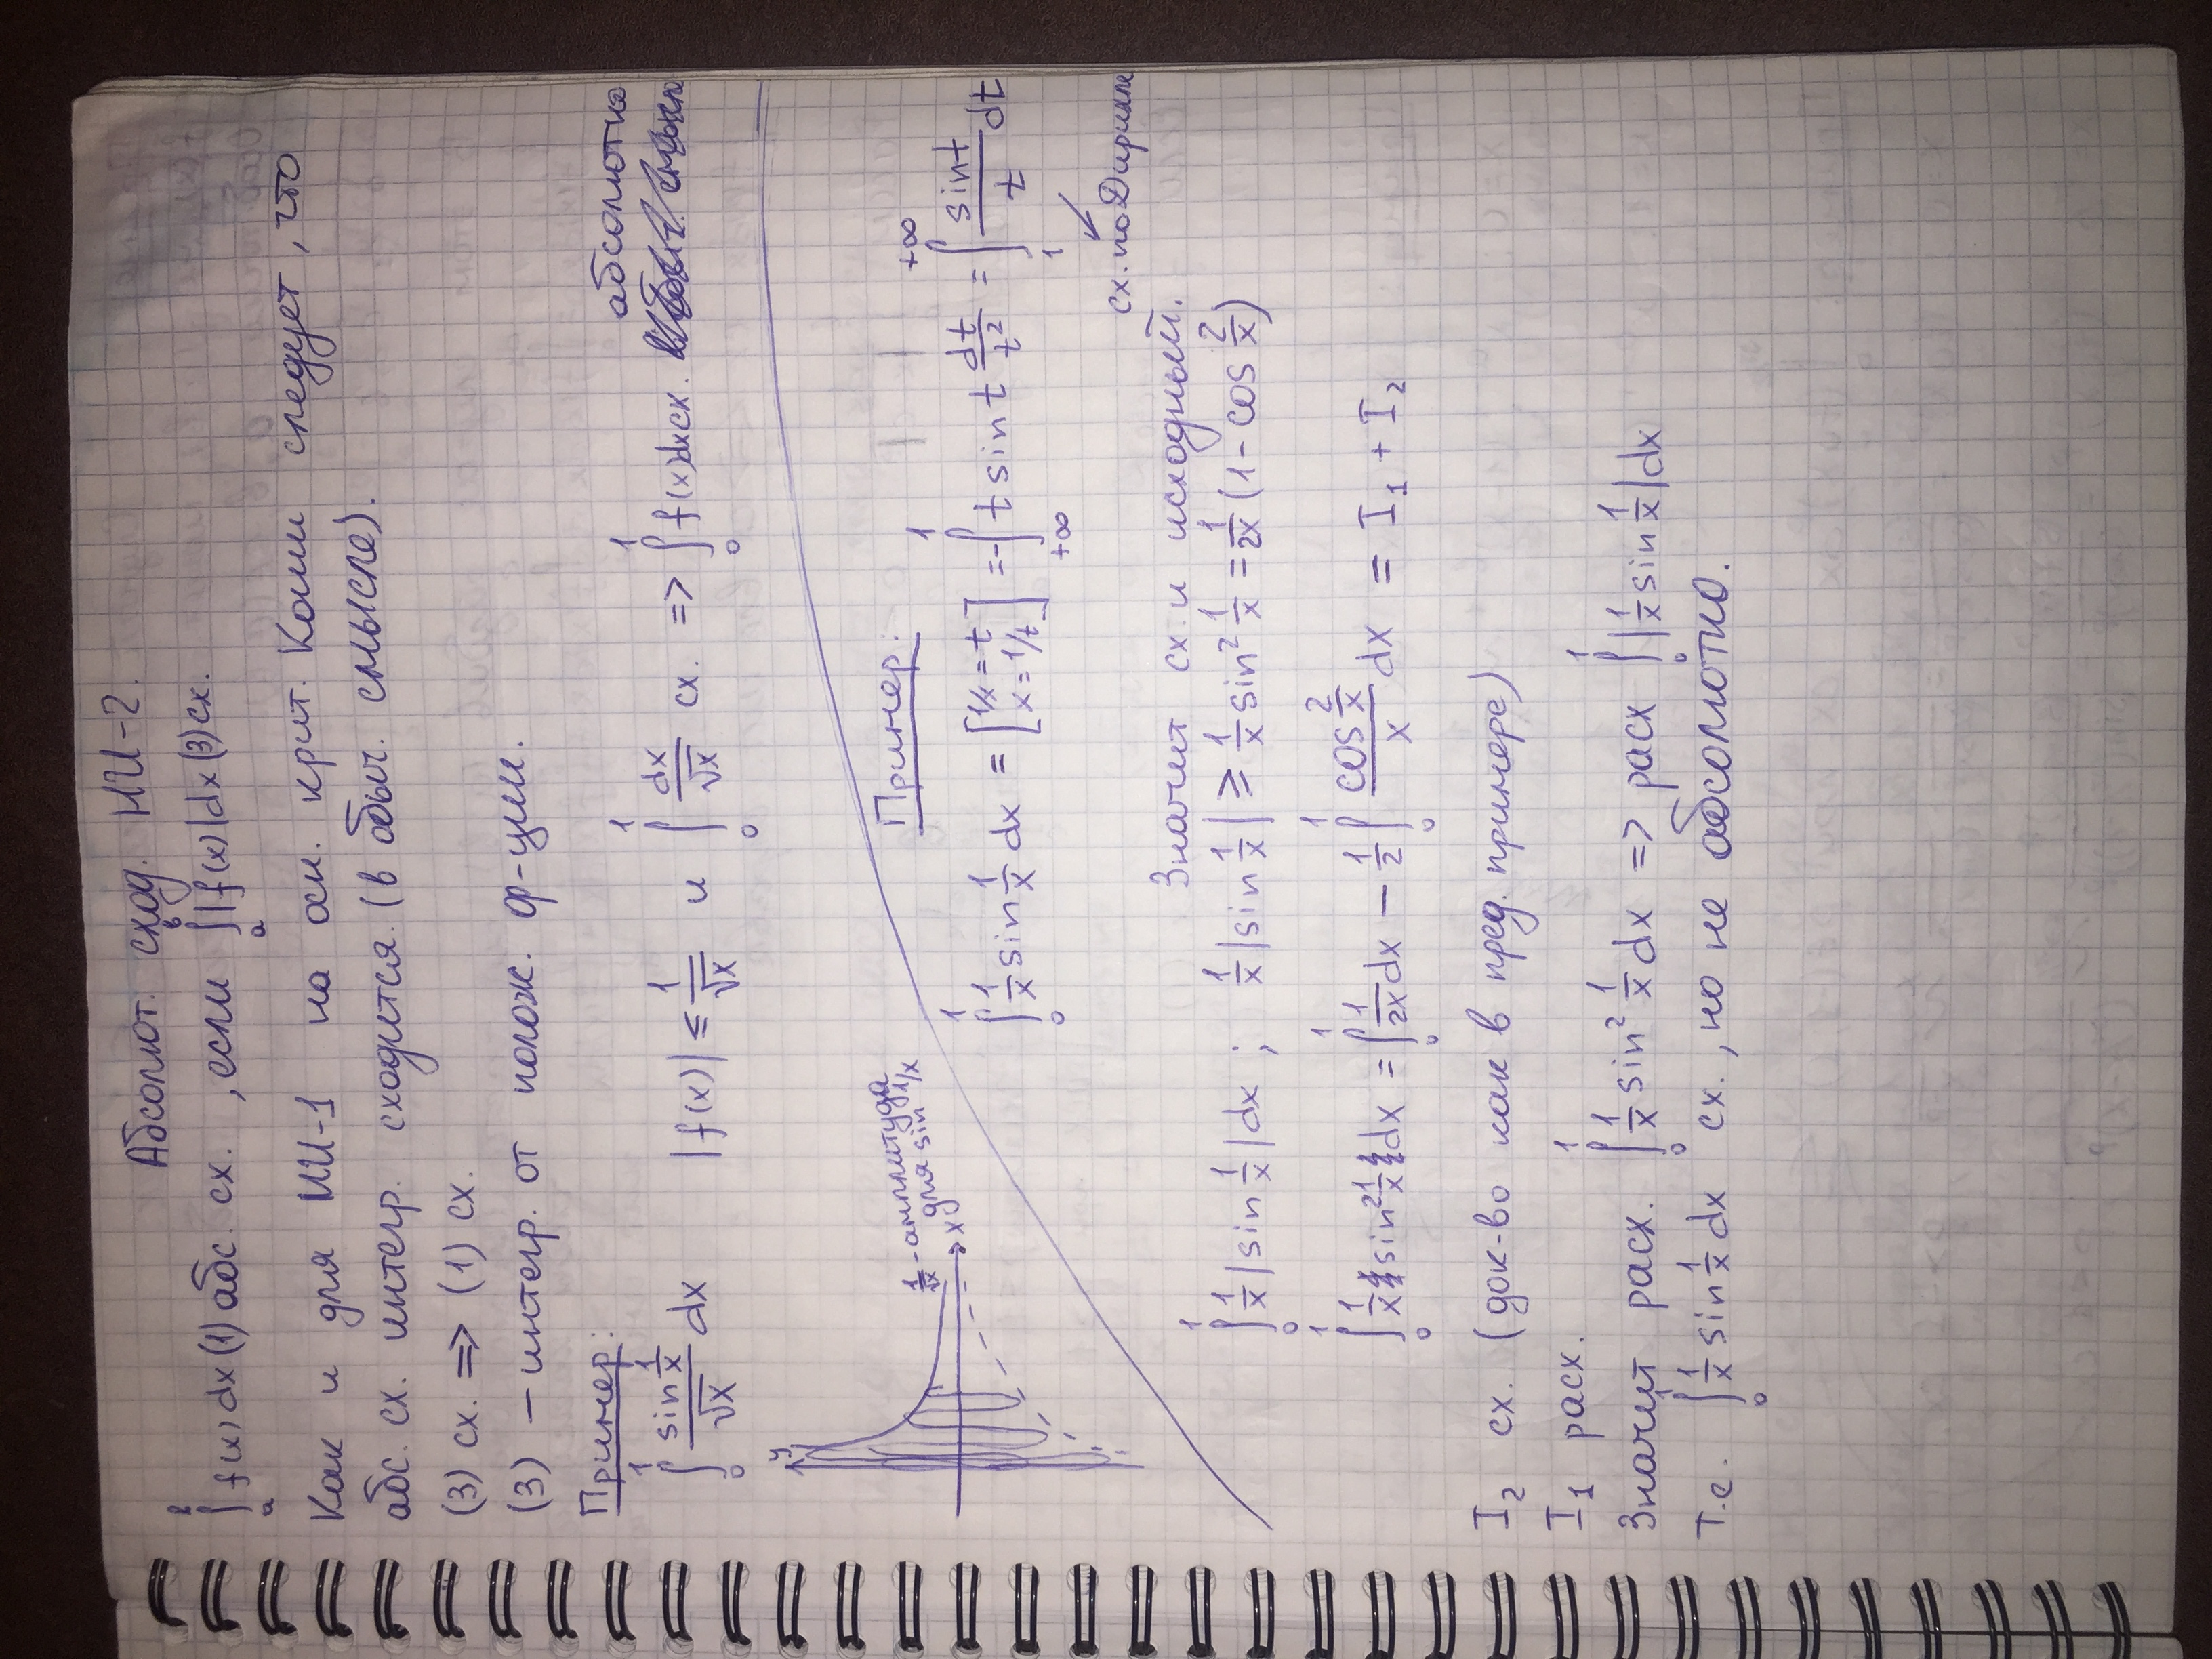 Абсолют. сход. НИ-2.
∫ₐᵇ f(x)dx (1) абс. сх. , если ∫ₐᵇ |f(x)|dx (3) сх.
Как и для НИ-1 на осн. крит. Коши следует, что
абс. сх. интегр. сходится. (в обыч. смысле).
(3) сх. => (1) сх.
(3) – интегр. от полож. ф-ции.
Пример:
∫₀¹ (sin 1/x)/√x dx |f(x)| ≤ 1/√x и ∫₀¹ dx/√x сх. => ∫₀¹ f(x)dx сх. абсолютно
y
x
1/√x - амплитуда
для sin 1/x
Пример:
∫₀¹ 1/x sin 1/x dx = [1/x = t x = 1/t] = -∫₊∞¹ t sin t dt/t² = ∫₁⁺∞ sin t/t dt
сх. по Дирихле
Значит сх. и исходный.
∫₀¹ 1/x |sin 1/x| dx ; 1/x |sin 1/x| ⩾ 1/x sin² 1/x = 1/2x (1 - cos 2/x)
∫₀¹ 1/x sin² 1/x dx = ∫₀¹ 1/2x dx – 1/2 ∫₀¹ (cos 2/x)/x dx = I₁ + I₂
I₂ сх. (док-во как в пред. примере)
I₁ расх.
Значит расх. ∫₀¹ 1/x sin² 1/x dx => расх ∫₀¹ |1/x sin 1/x| dx
Т.е. ∫₀¹ 1/x sin 1/x dx сх., но не абсолютно.